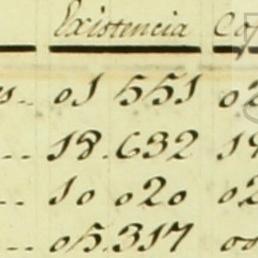 Existencia Co
s.. 01 551 02
... 18.632 19
... 10 020 02
... 05.317 00